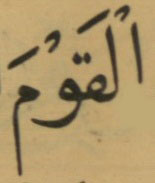 الْقَوْمَ